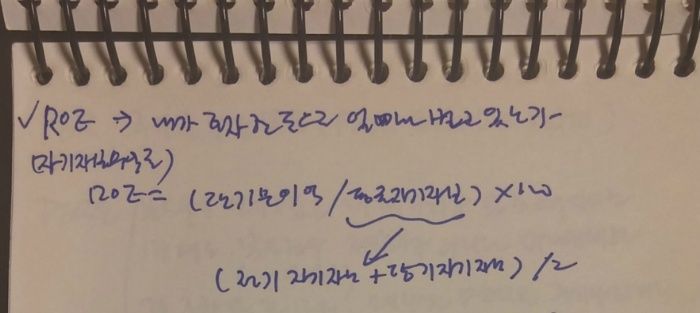 ✓ ROE → 내가 투자한 돈으로 얼마나 벌고 있는가
(자기자본이익률)
ROE = (당기순이익 / 평균자기자본) × 100
(전기자기자본 + 당기자기자본) / 2